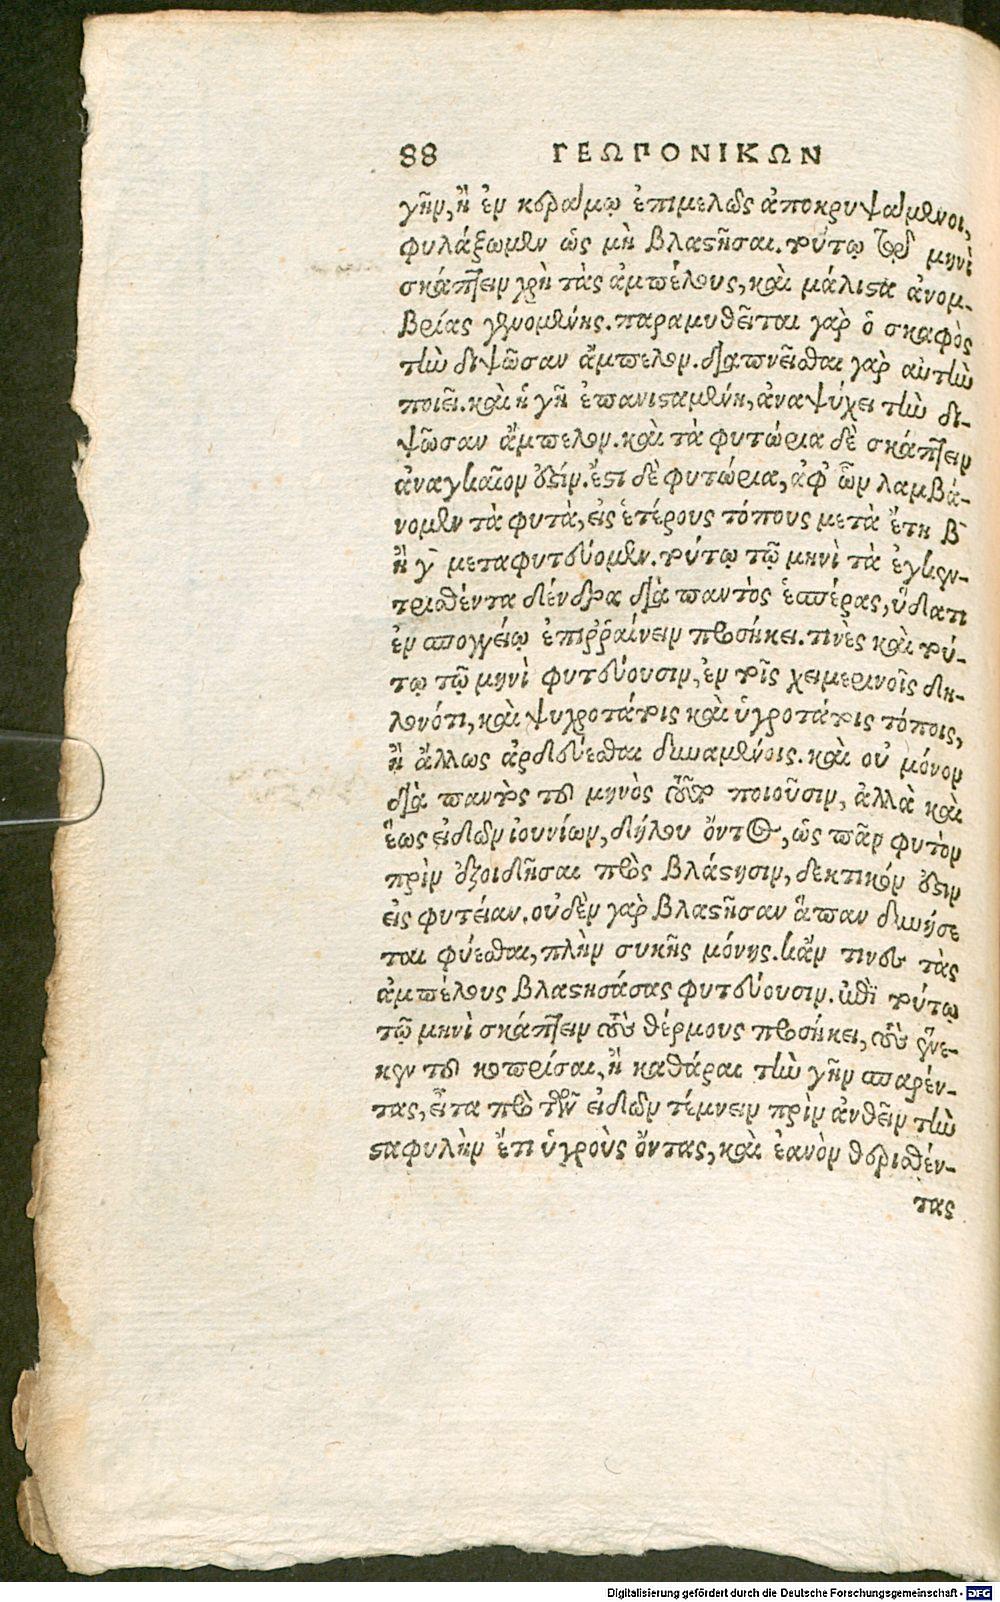 88 ΓΕΩΠΟΝΙΚΩΝ
γῆν, ἢ ἐν κεράμῳ ἐπιμελῶς ἀποκρυψάμενοι,
φυλάξωμεν ὡς μὴ βλαστῆσαι. τούτῳ τῷ μηνὶ
σκάπτειν χρὴ τὰς ἀμπέλους, καὶ μάλιστα ἀνομ-
βρίας γενομένης. παραμυθεῖται γὰρ ὁ σκαφὸς
τὴν διψῶσαν ἄμπελον. διαπνεῖσθαι γὰρ αὐτὴν
ποιεῖ. καὶ ἡ γῆ ἐπανισταμένη, ἀναψύχει τὴν δι-
ψῶσαν ἄμπελον. καὶ τὰ φυτώρια δὲ σκάπτειν
ἀναγκαῖον ἐστίν. ἔστι δὲ φυτώρια, ἀφ' ὧν λαμβά-
νομεν τὰ φυτὰ, εἰς ἑτέρους τόπους μετὰ ἔτη β
ἢ γ μεταφυτεύομεν. τούτῳ τῷ μηνὶ τὰ ἐγκεν-
τρισθέντα δένδρα διὰ παντὸς ἑσπέρας, ὕδατι
ἐν σπογγείῳ ἐπιῤῥαίνειν προσήκει. τινὲς καὶ τού-
τῳ τῷ μηνὶ φυτεύουσιν, ἐν τοῖς χειμερινοῖς δη-
λονότι, καὶ ψυχροτάτοις καὶ ὑγροτάτοις τόποις,
ἢ ἄλλως ἀρδεύεσθαι δυναμένοις. καὶ οὐ μόνον
διὰ παντὸς τοῦ μηνὸς τοῦτο ποιοῦσιν, ἀλλὰ καὶ
ἕως εἰδῶν ἰουνίων, δήλου ὄντος, ὡς πᾶν φυτὸν
πρὶν ἐξοιδῆσαι πρὸς βλάστησιν, δεκτικόν ἐστιν
εἰς φυτείαν. οὐδὲν γὰρ βλαστῆσαν ἅπαν δυνήσε
ται φύεσθαι, πλὴν συκῆς μόνης. κἄν τινες τὰς
ἀμπέλους βλαστησάσας φυτεύουσιν. ἐν τούτῳ
τῷ μηνὶ σκάπτειν τοὺς θέρμους προσήκει, τοὺς ἕνε-
κεν τοῦ κοπρίσαι, ἢ καθάραι τὴν γῆν σπαρέν-
τας, εἶτα πρὸ τῶν εἰδῶν τέμνειν πρὶν ἀνθεῖν τὴν
σταφυλὴν ἔτι ὑγροὺς ὄντας, καὶ ἐανὸν θερισθέν-
τας
Digitalisierung gefördert durch die Deutsche Forschungsgemeinschaft - DFG